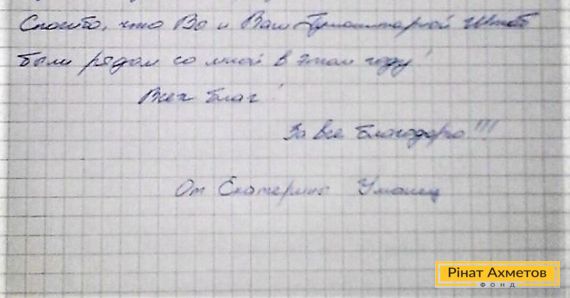 Спасибо, что Вы и Ваш Гуманитарной Штаб
были рядом со мной в этом году!
Всех благ!
За все благодарю!!!
От Екатерины Уманец
Рінат Ахметов
ФОНД